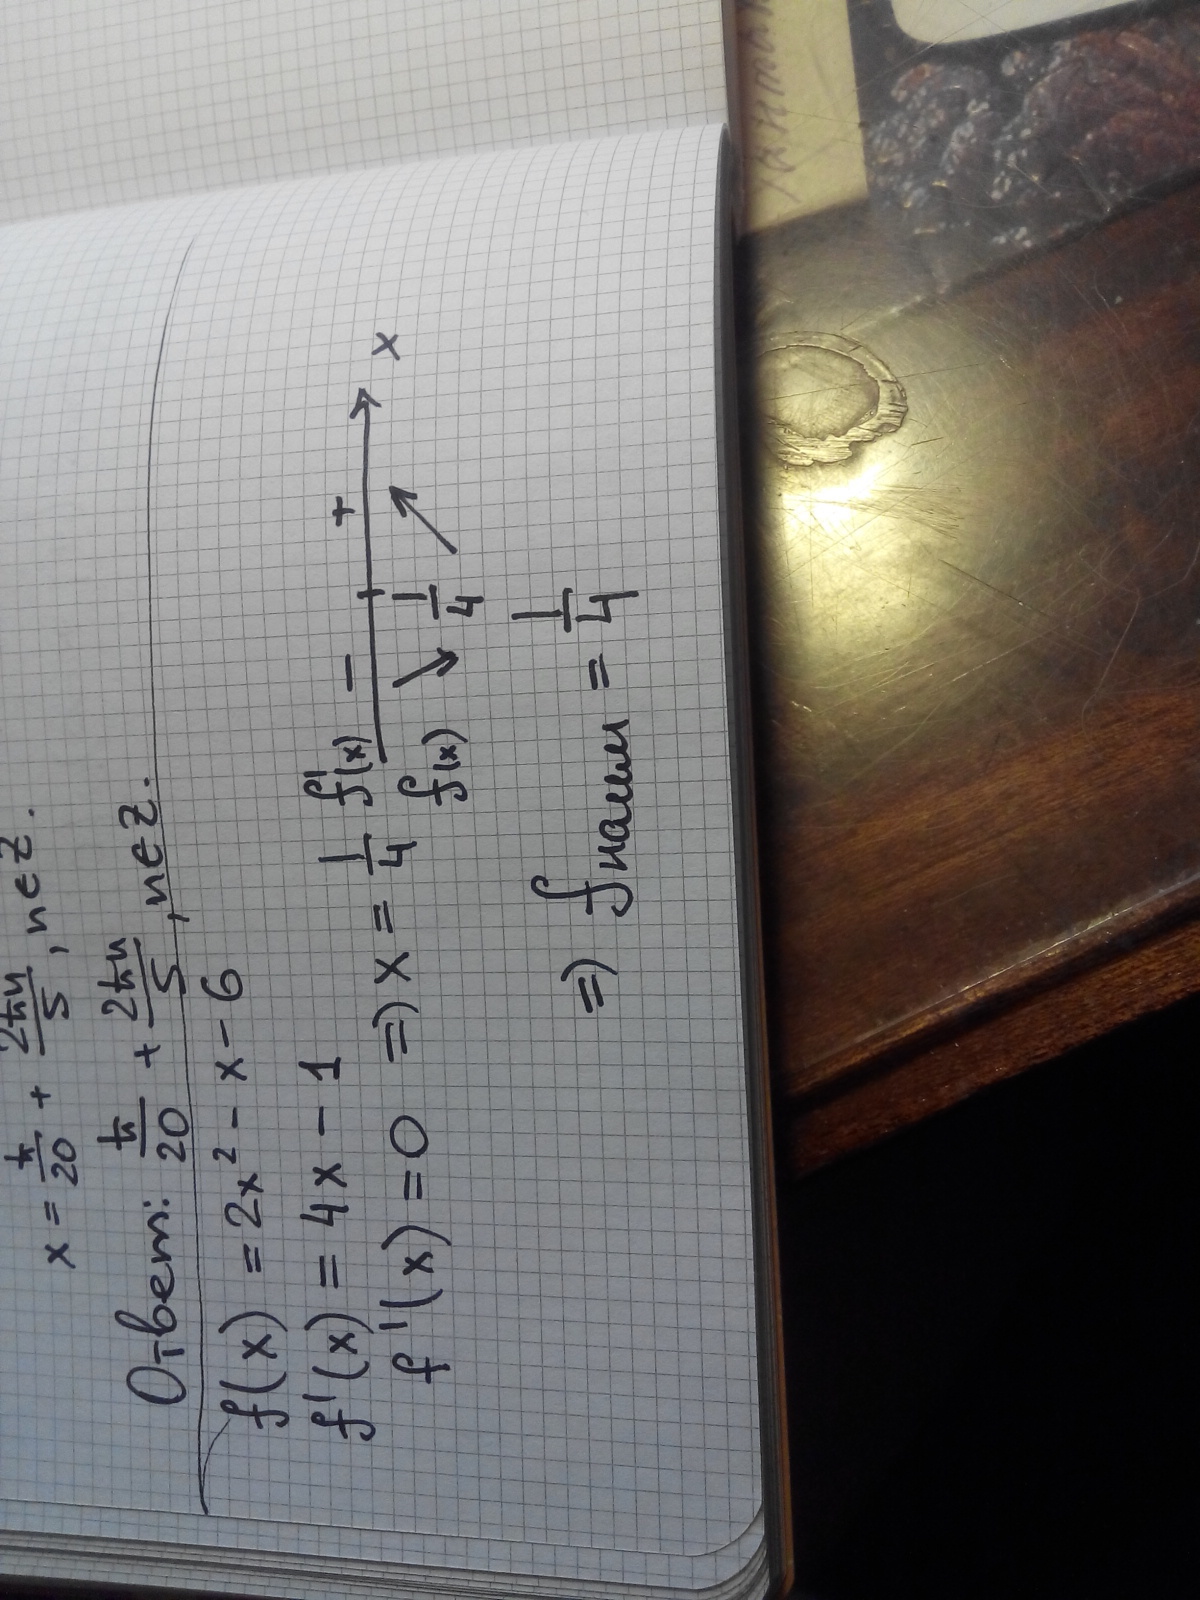 x = π/20 + 2πn/5, n∈Z.
Ответ: π/20 + 2πn/5, n∈Z.
f(x) = 2x² - x - 6
f'(x) = 4x - 1
f'(x) = 0 => x = 1/4
f'(x) - + x
f(x) ↘ 1/4 ↗
=> fнаим = 1/4